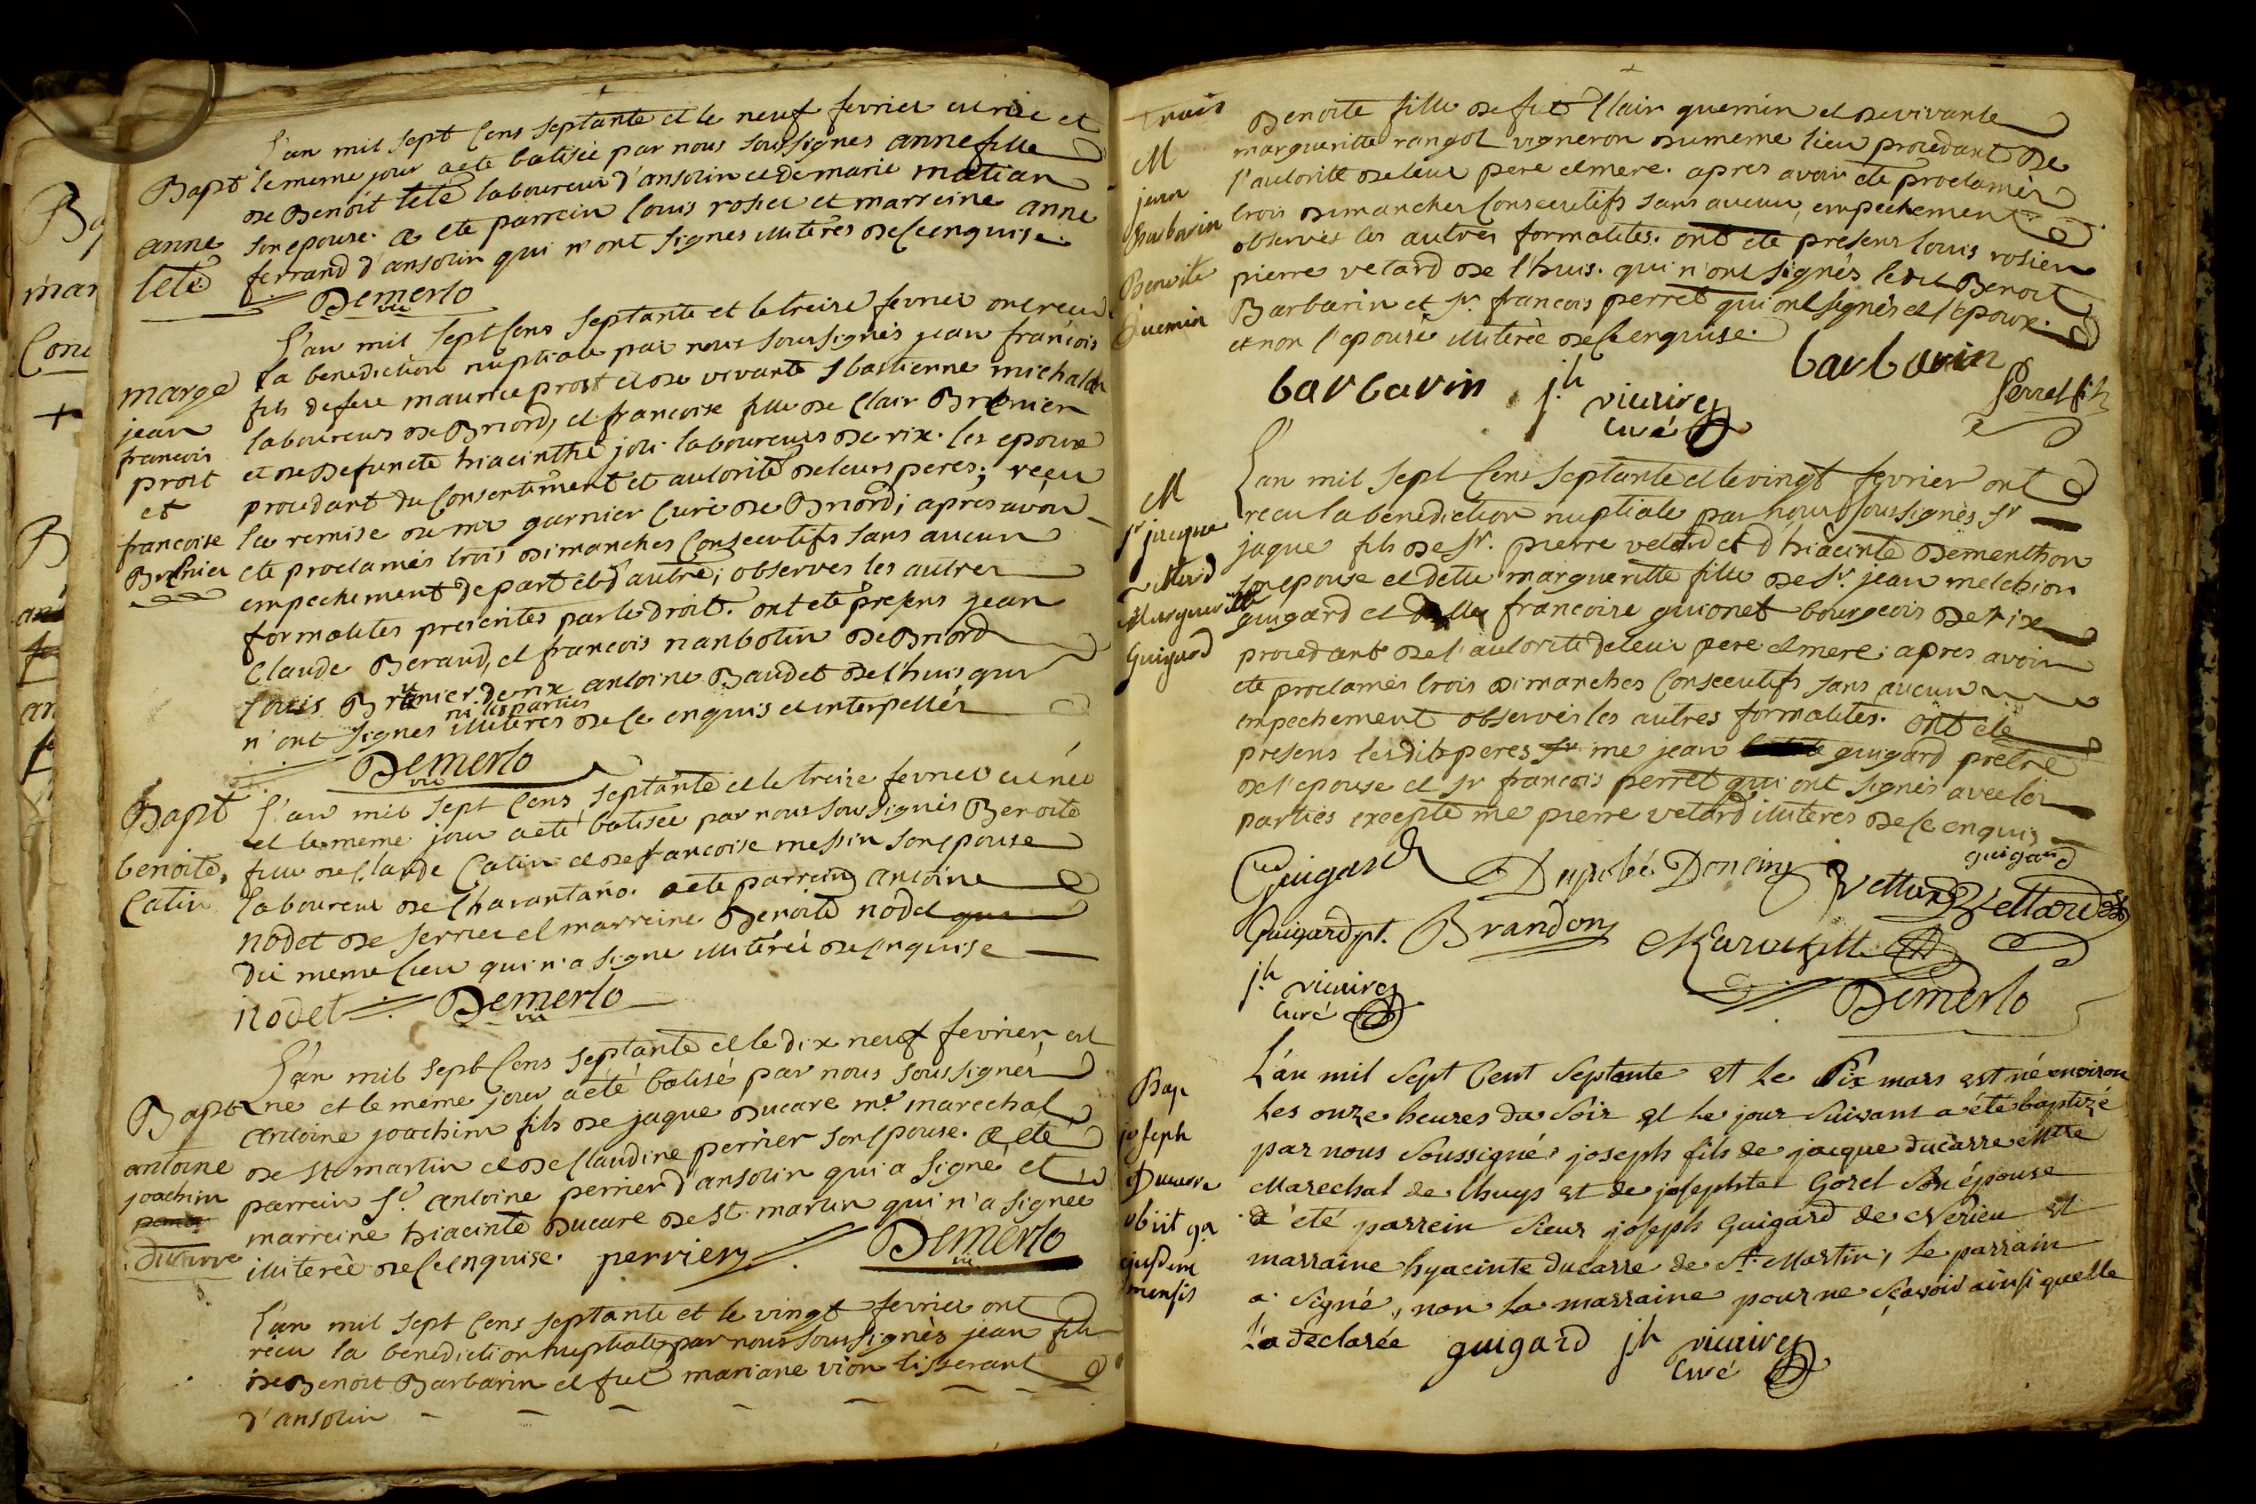 L'an mil sept Cens septante et le neuf fevrier est née et
Bapt le meme jour a eté batisée par nous soussignes anne fille
de Benoit teté laboureur d'ansolin et de marie matian
anne son epouse. a eté parrein Louis rosier et marreine anne
teté ferrand d'ansolin qui n'ont signes illiterès de ce enquise.
Demerlo
vic
L'an mil sept Cens septante et le treize fevrier ont recu
la benediction nuptiale par nous soussignés jean françois
marge fils de feu maurice prost et de vivante sbastienne michalet
jean laboureurs de Briord, et francoise fille de Clair Brunier
francois et de defuncte hiacinthe joli laboureurs de rix. les epoux
prost procedant du Consentement et autorité de leurs peres; recu
et la remise de mr garnier Curé de Briord; après avoir
francoise eté proclamés trois dimanches Consecutifs sans aucun
Brunier empechement de part et d'autre; observes les autres
formalites prescrites par le droit. ont eté presens jean
Claude Beraud, et francois nanbotin de Briord
Louis Brunier de rix antoine Baudet de l'huis qui
ni les parties
n'ont signes illiteres de ce enquis et interpellés
Demerlo
vic
Bapt L'an mil sept Cens septante et le treize fevrier est née
et le meme jour a eté batisée par nous soussignés Benoite
benoite fille de Claude Catin et de francoise messin son epouse
Catin laboureur de Charantano. a eté parrein antoine
nodet de serrier et marreine Benoite nodet
du meme lieu qui n'a signe illiterée de enquise
nodet Demerlo
vic
L'an mil sept Cens septante et le dix neuf fevrier est
Bapt né et le meme jour a eté batisé par nous soussignés
antoine joachim fils de jaque ducare me marechal
antoine de st martin et de Claudine perrier son epouse. a eté
joachim parrein sr antoine perrier d'ansolin qui a signé et
marreine hiacinte ducare de st martin qui n'a signée
ducarre illiterée de ce enquise. perrier Demerlo
vic
L'an mil sept Cens septante et le vingt fevrier ont
recu la benediction nuptiale par nous soussignès jean fils
de Benoit Barbarin et fut mariane vion tisserant
d'ansolin
Benoite fille de fut Clair quemin et de vivante
M margueritte rangot vigneron du meme lieu procedant de
jean l'autorité de leur pere et mere. apres avoir eté proclamès
Barbarin trois dimanches Consecutifs sans aucun empechement
observés les autres formalites. ont eté presens louis rosier
Benoite pierre vetard de l'huis. qui n'ont signés le dit Benoit
Quemin Barbarin et sr francois perret qui ont signés et l'epoux.
et non l'epouse illiterée de ce enquise.
barbarin jh vicuire barbarin
Curé Perret fils
L'an mil sept Cens septante et le vingt fevrier ont
M recu la benediction nuptiale par nous soussignès sr
sr jacque jaque fils de sr. pierre vetard et d'hiacinte dementhon
vettard son epouse et delle margueritte fille de sr jean melchior
Marguerite guigard et delle francoise guionet bourgeois de rix
Guigard procedant de l'autorité de leur pere et mere. apres avoir
eté proclamés trois dimanches Consecutifs sans aucun
empechement observés les autres formalites. ont eté
presens lesdits peres sr me jean guigard pretre
de l'epouse et sr francois perret qui ont signés avec les
parties excepté me pierre vetard illiteres de ce enquis
guigard
Guigard Duprobé Doncin Vettard Vettard
Guigard pt. Brandon
jh vicuire
Curé Demerlo
Bap L'an mil sept Cent septante et le six mars est né environ
les onze heures du soir et le jour suivant a été baptizé
joseph par nous soussigné joseph fils de jacque ducarre Mtre
Ducarre Marechal de lhuys et de josephte Gorel son épouse
obiit 9a a été parrein sieur joseph Guigard de Verieu et
ejusdem marraine hyacinte ducarre de St Martin, le parrain
mensis a signé, non la marraine pour ne sçavoir ainsi quelle
l'a déclarée guigard jh vicuire
Curé